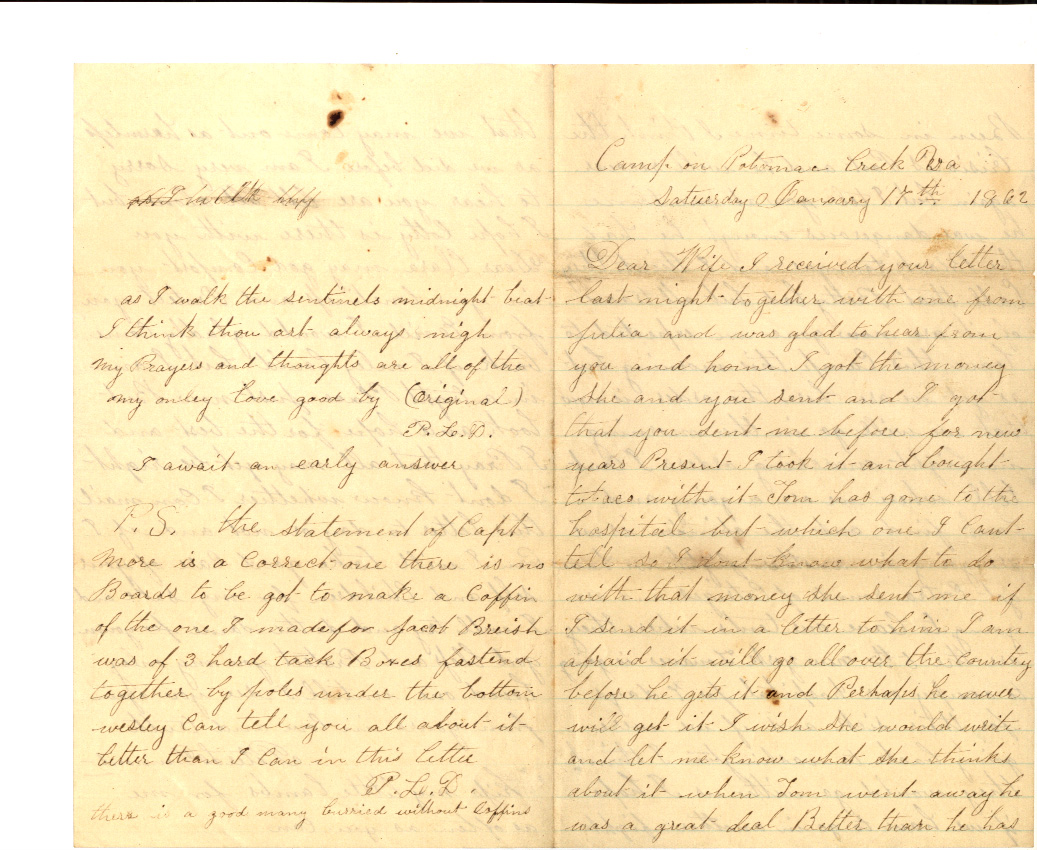 Camp on Potomac Creek Va
Saturday January 17th 1862
Dear Wife I received your letter
last night together with one from
Julia and was glad to hear from
you and home I got the money
she and you sent and I got
that you sent me before for new
years Present I took it and bought
with it Tom has gone to the
hospital but which one I cant
tell so I dont know what to do
with that money she sent me if
I send it in a letter to him I am
afraid it will go all over the country
before he gets it and Perhaps he never
will get it I wish she would write
and let me know what she thinks
about it when Tom went away he
was a great deal Better than he has
as I walk the sentinels midnight beat
I think thou art always nigh
my Prayers and thoughts are all of the
my onley Love good by (Original)
P.L.D.
I await an early answer
P.S. the statement of Capt
More is a Correct one there is no
Boards to be got to make a Coffin
of the one I made for Jacob Breish
was of 3 hard tack Boxes fastend
together by poles under the bottom
wesley Can tell you all about it
better than I Can in this letter
P.L.D.
there is a good many burried without Coffins